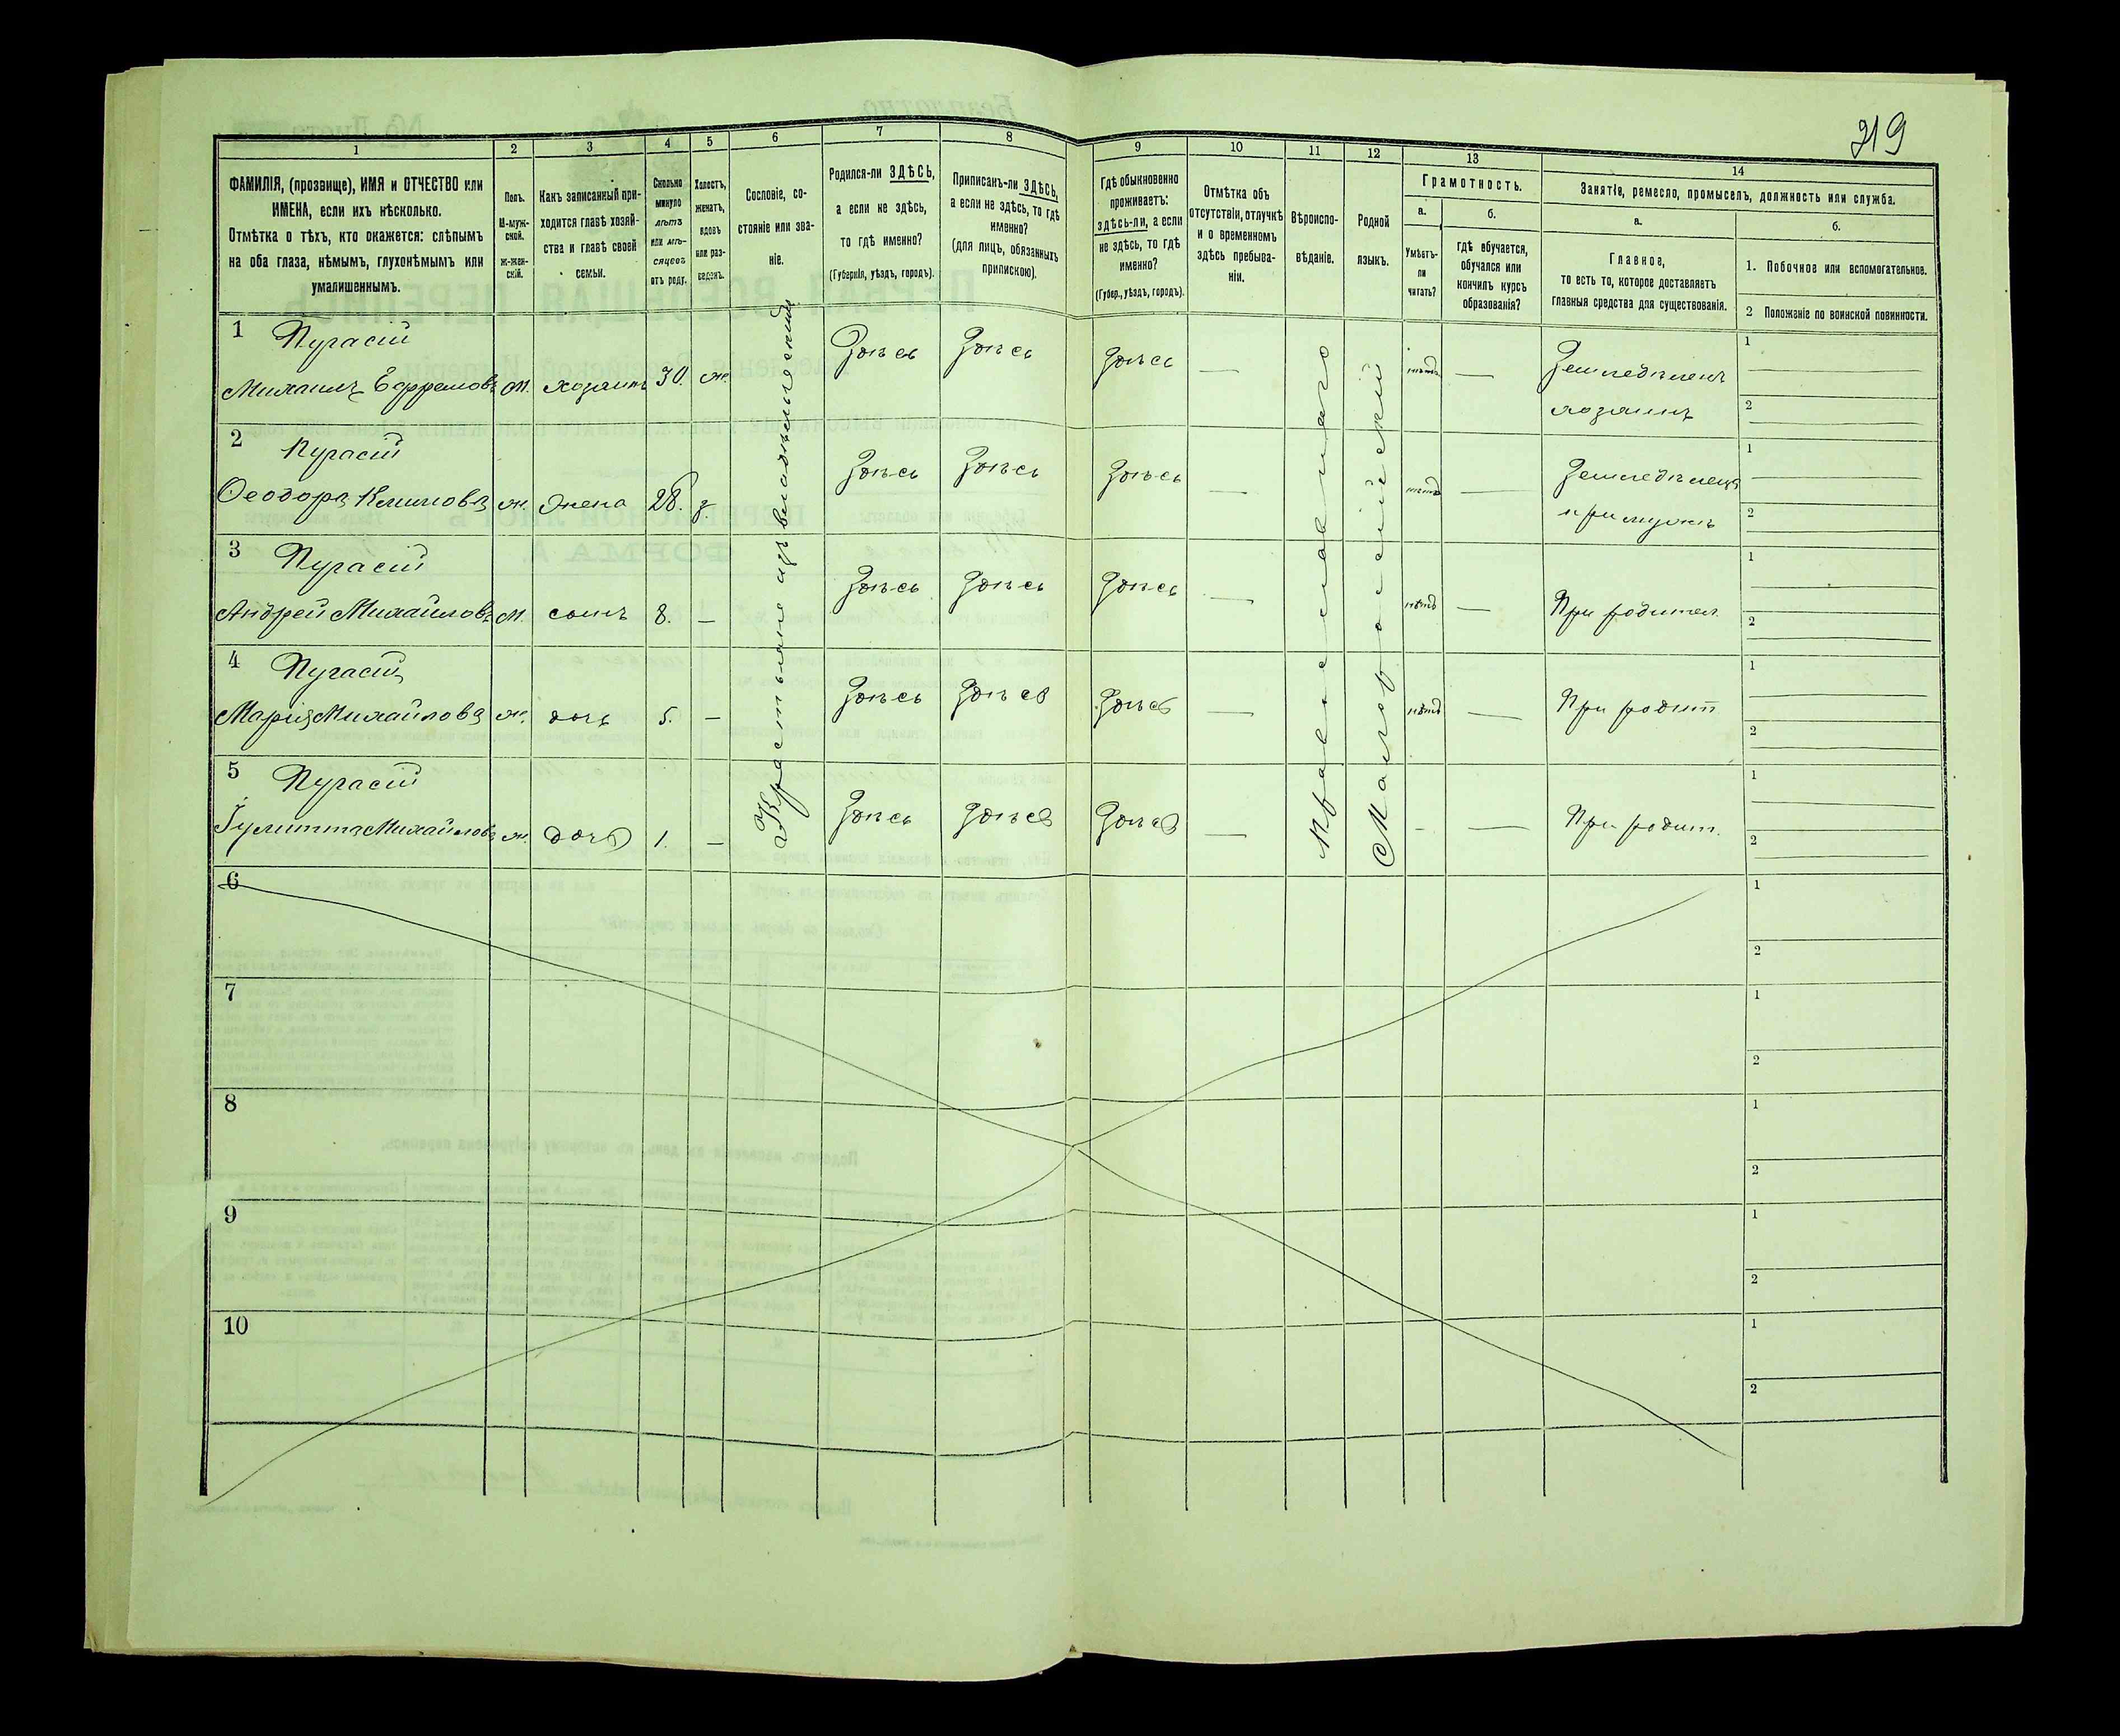 219
1 2 3 4 5 6 7 8 9 10 11 12 13 14
ФАМИЛІЯ, (прозвище), ИМЯ и ОТЧЕСТВО или
ИМЕНА, если ихъ нѣсколько.
Отмѣтка о тѣхъ, кто окажется: слѣпымъ
на оба глаза, нѣмымъ, глухонѣмымъ или
умалишеннымъ.
Полъ.
М-муж-
ской.
ж-жен-
скій.
Какъ записанный при-
ходится главѣ хозяй-
ства и главѣ своей
семьи.
Сколько
минуло
лѣтъ
или мѣ-
сяцевъ
отъ роду.
Холостъ,
женатъ,
вдовъ
или раз-
веденъ.
Сословіе, со-
стояніе или зва-
ніе.
Родился-ли ЗДѢСЬ,
а если не здѣсь,
то гдѣ именно?
(Губернія, уѣздъ, городъ).
Приписанъ-ли ЗДѢСЬ,
а если не здѣсь, то гдѣ
именно?
(для лицъ, обязанныхъ
припискою).
Гдѣ обыкновенно
проживаетъ:
здѣсь-ли, а если
не здѣсь, то гдѣ
именно?
(Губер., уѣздъ, городъ).
Отмѣтка объ
отсутствіи, отлучкѣ
и о временномъ
здѣсь пребыва-
ніи.
Вѣроиспо-
вѣданіе.
Родной
языкъ.
Грамотность.
а.
Умѣетъ-
ли
читать?
б.
гдѣ обучается,
обучался или
кончилъ курсъ
образованія?
Занятіе, ремесло, промыселъ, должность или служба.
а.
Главное,
то есть то, которое доставляетъ
главныя средства для существованія.
б.
1. Побочное или вспомогательное.
2 Положеніе по воинской повинности.
Крестьяне изъ владѣльческихъ
Православнаго
Малороссійскій
1 Пугасій
Михаилъ Ефремовъ м. хозяинъ 30. ж. Здѣсь Здѣсь Здѣсь — нѣтъ — Земледѣлецъ
хозяинъ
1
2
2 Пугасій
Ѳеодора Климова ж. жена 28. з. Здѣсь Здѣсь Здѣсь — нѣтъ —
при мужѣ
1
2
3 Пугасій
Андрей Михайловъ м. сынъ 8. — Здѣсь Здѣсь Здѣсь — нѣтъ — При родител.
1
2
4 Пугасій
Марія Михайлова ж. дочь 5. — Здѣсь Здѣсь Здѣсь — нѣтъ — При родит
1
2
5 Пугасій
Іулитта Михайлова ж. дочь 1. — Здѣсь Здѣсь Здѣсь — - — При родит.
1
2
6
1
2
7
1
2
8
1
2
9
1
2
10
1
2